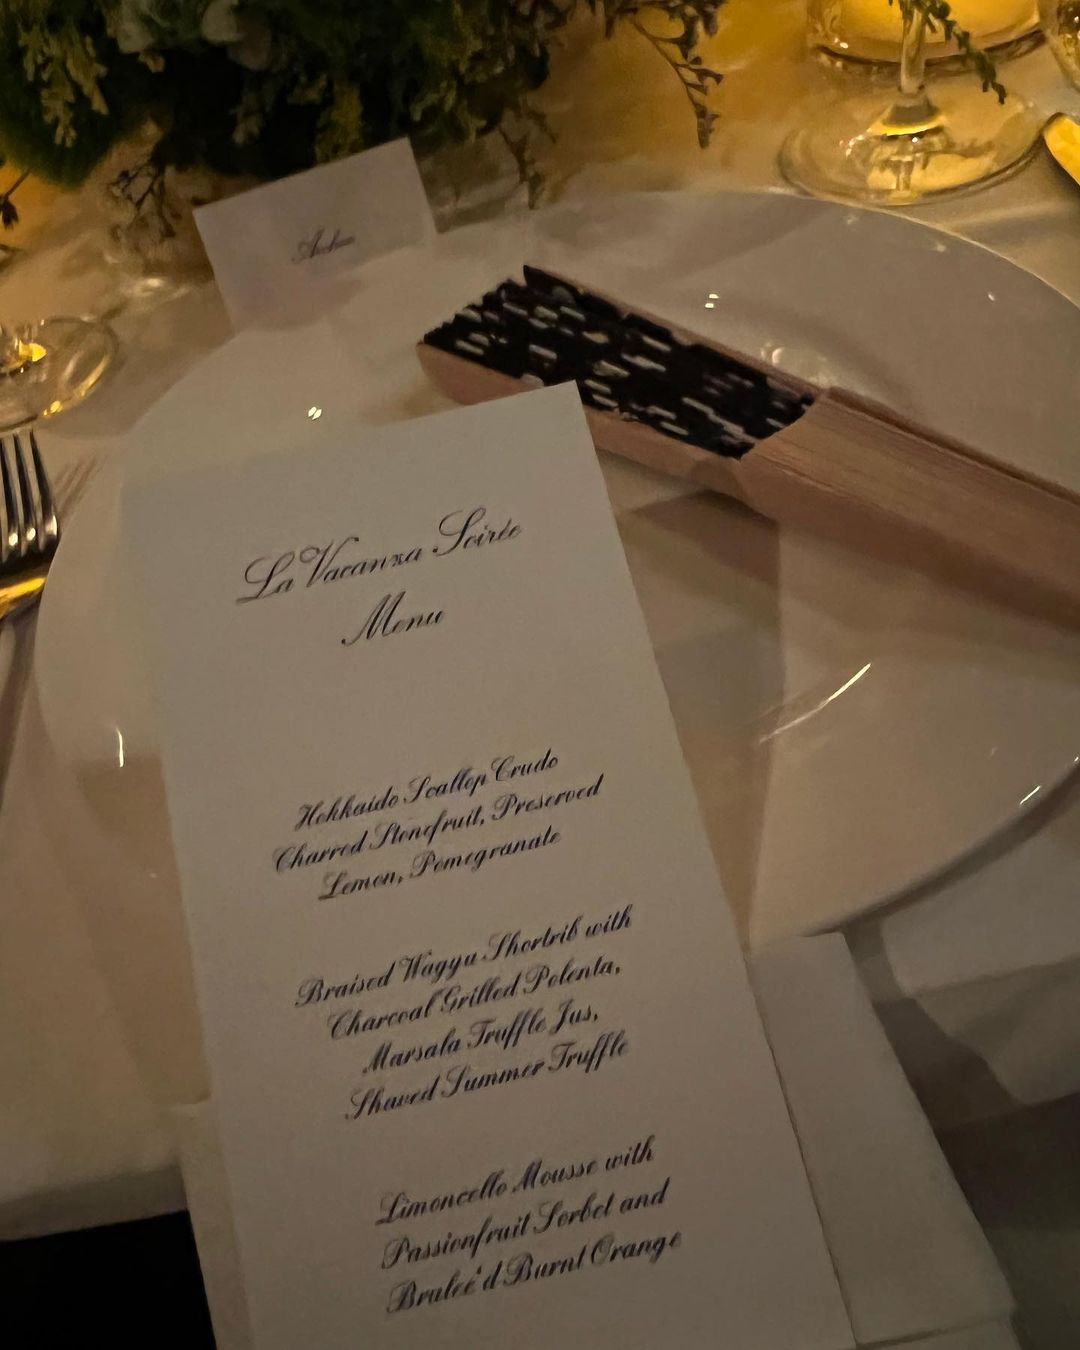 La Vacanza Soirée
Menu
Hokkaido Scallop Crudo
Charred Stonefruit, Preserved
Lemon, Pomegranate
Braised Wagyu Shortrib with
Charcoal Grilled Polenta,
Marsala Truffle Jus,
Shaved Summer Truffle
Limoncello Mousse with
Passionfruit Sorbet and
Brulee'd Burnt Orange